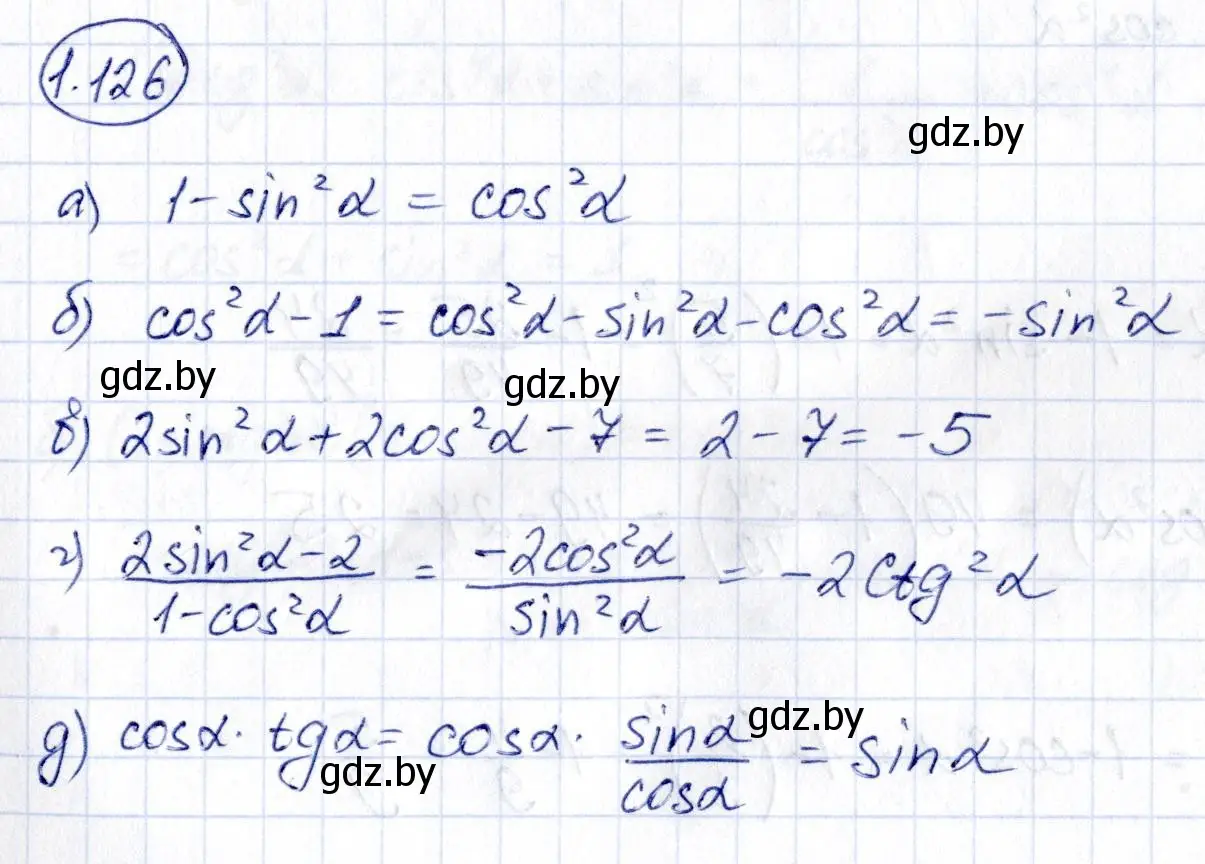 1.126
gdz.by
а) 1 - sin²α = cos²α
б) cos²α - 1 = cos²α - sin²α - cos²α = -sin²α
gdz.by gdz.by
в) 2sin²α + 2cos²α - 7 = 2 - 7 = -5
г) (2sin²α - 2)/(1 - cos²α) = (-2cos²α)/(sin²α) = -2ctg²α
д) cosα · tgα = cosα · sinα/cosα = sinα
gdz.by
gdz.by